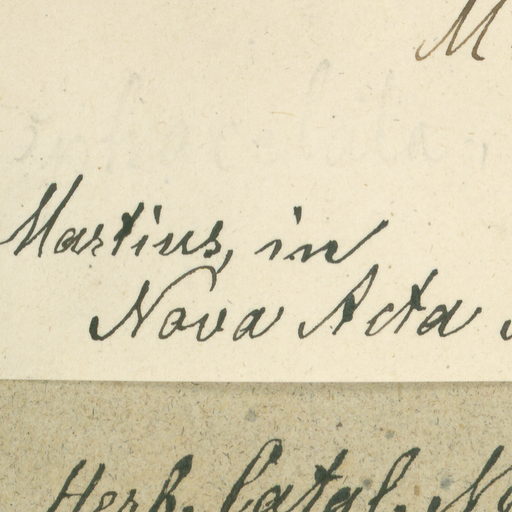 M
Martius, in
Nova Acta
Herb. Catal. No